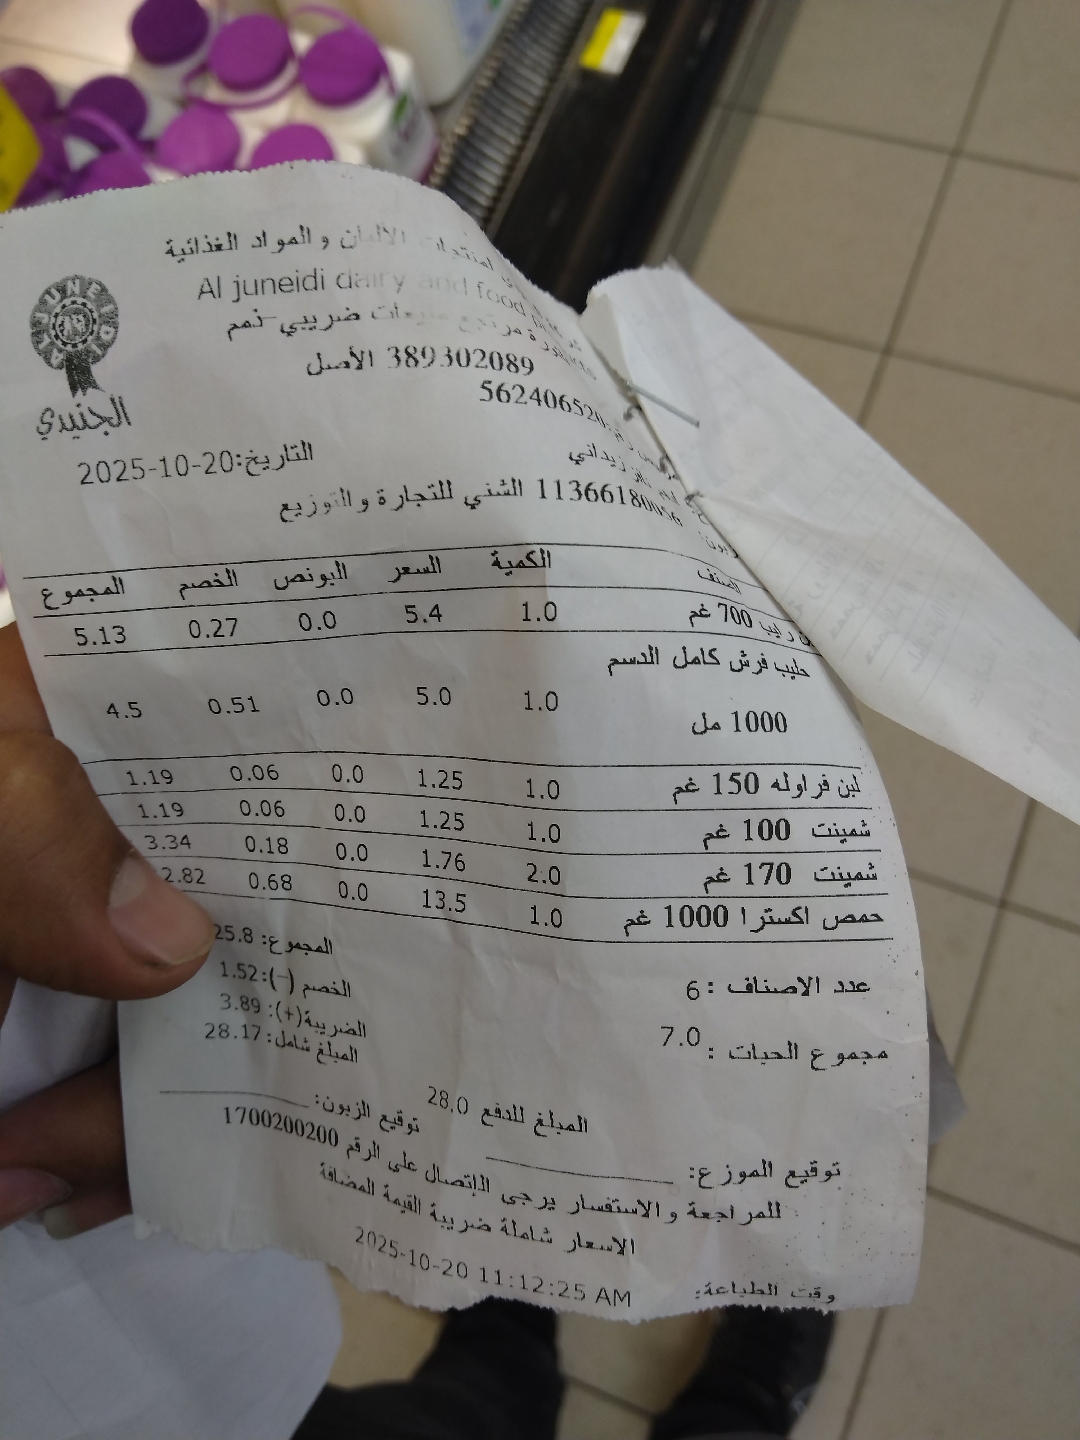 لمنتجات الألبان و المواد الغذائية
Al juneidi dairy and food
مرتجع مبيعات ضريبي-ذمم
389302089 الأصل
562406520
AL JUNEIDI
الجنيدي
زيداني
التاريخ:2025-10-20
الشني للتجارة والتوزيع
الصنف الكمية السعر البونص الخصم المجموع
رايب 700 غم 1.0 5.4 0.0 0.27 5.13
حليب فرش كامل الدسم
1000 مل 1.0 5.0 0.0 0.51 4.5
لبن فراوله 150 غم 1.0 1.25 0.0 0.06 1.19
شمينت 100 غم 1.0 1.25 0.0 0.06 1.19
شمينت 170 غم 2.0 1.76 0.0 0.18 3.34
حمص اكسترا 1000 غم 1.0 13.5 0.0 0.68 2.82
المجموع: 25.8
عدد الاصناف : 6
الخصم (-): 1.52
الضريبة(+): 3.89
مجموع الحبات : 7.0
المبلغ شامل: 28.17
المبلغ للدفع 28.0
توقيع الزبون:
توقيع الموزع:
للمراجعة والاستفسار يرجى الإتصال على الرقم 1700200200
الاسعار شاملة ضريبة القيمة المضافة
وقت الطباعة: 2025-10-20 11:12:25 AM